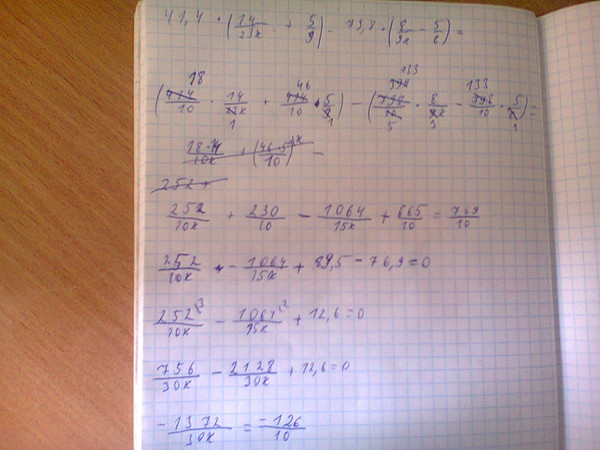 41,4 · (14/23x + 5/9) - 79,8 · (8/9x - 5/6) =
(18 414/10 · 14/23x 1 + 46 414/10 · 5/9 1) - (133 798/10 5 · 8/9x 3 - 133 798/10 · 5/6 1) =
18·14/10x + (46·5/10)
252 +
252/10x + 230/10 - 1064/15x + 665/10 = 769/10
252/10x - 1064/15x + 89,5 - 76,9 = 0
252^3/10x - 1064^2/15x + 12,6 = 0
756/30x - 2128/30x + 12,6 = 0
-1372/30x = -126/10